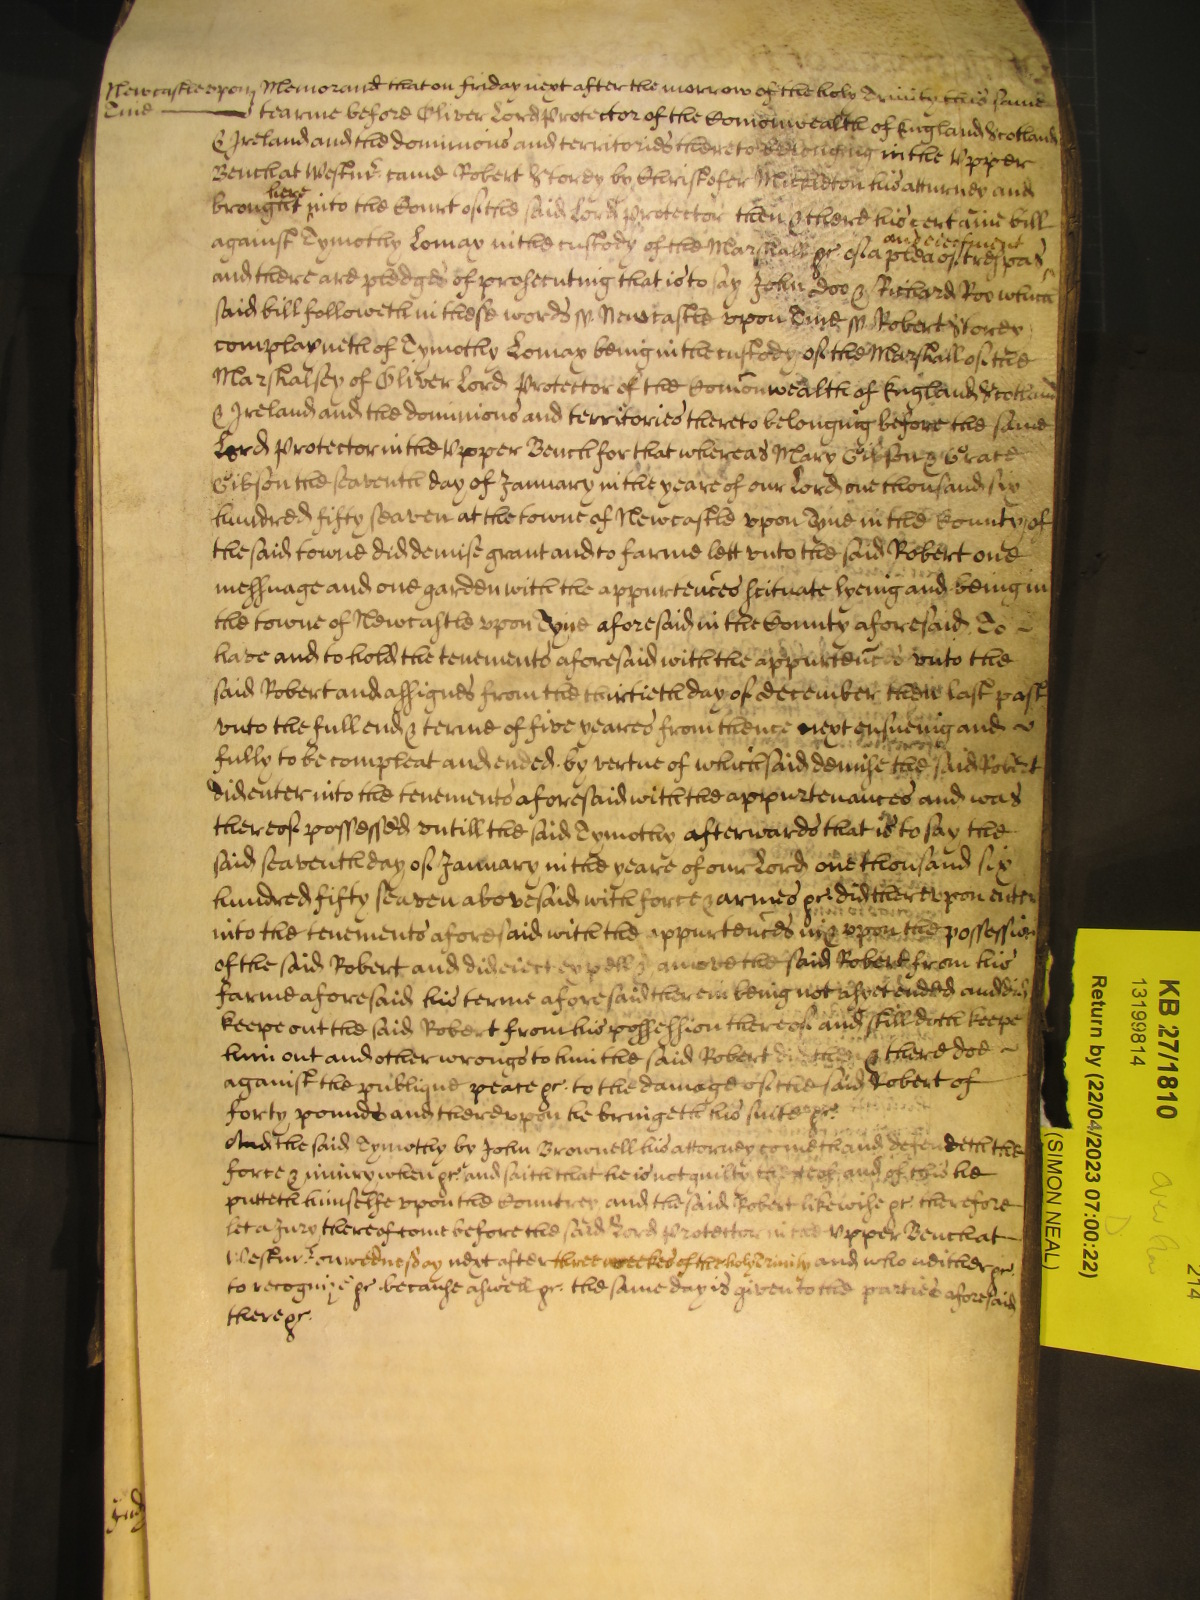 Newcastle upon Memorand that on friday next after the morrow of the holy Trinity this same
Tine tearme before Oliver Lord Protector of the Comonwealth of England Scotland
& Ireland and the dominions and territories thereto belonging in the Upper
Bench at Westmr. came Robert Storey by Christofer Middleton his atturney and
here
brought into the Court of the said Lord Protector then & there his certaine bill
and eiectment
against Tymothy Lomax in the custody of the Marshall &c. of a plea of trespas
and there are pledges of prosecuting that is to say John Doo & Richard Roo which
said bill followeth in these words ss Newcastle upon Tyne ss Robert Storey
complayneth of Tymothy Lomax being in the custody of the Marshall of the
Marshalsey of Oliver Lord Protector of the Comonwealth of England Scotland
& Ireland and the dominions and territories thereto belonging before the same
Lord Protector in the Upper Bench for that whereas Mary Gibson & Grace
Gibson the seaventh day of January in the yeare of our Lord one thousand six
hundred fifty seaven at the towne of Newcastle upon Tyne in the County of
the said towne did demise grant and to farme lett unto the said Robert one
messuage and one garden with the appurtences scituate lyeing and being in
the towne of Newcastle upon Tyne aforesaid in the County aforesaid To
have and to hold the tenements aforesaid with the appurtences unto the
said Robert and assignes from the thirtieth day of december then last past
unto the full end & terme of five yeares from thence next ensueing and
fully to be compleat and ended by vertue of which said demise the said Robert
did enter into the tenements aforesaid with the appurtenances and was
thereof possessed untill the said Tymothy afterwards that is to say the
said seaventh day of January in the yeare of our Lord one thousand six
hundred fifty seaven abovesaid with force & armes &c. did thereupon enter
into the tenements aforesaid with the appurtences in & upon the possession
of the said Robert and did eiect expell & amove the said Robert from his
farme aforesaid his terme aforesaid therein being not as yet ended and did
keepe out the said Robert from his possession thereof and still doth keepe
him out and other wrongs to him the said Robert did then & there doe
against the publique peace &c. to the damage of the said Robert of
forty pounds and thereupon he bringeth his suite &c.
And the said Tymothy by John Brownell his attorney cometh and defendeth the
force & iniury when &c. and saith that he is not guilty thereof and of this he
putteth himselfe upon the Countrey and the said Robert likewise &c. therefore
let a Jury thereof come before the said Lord Protector in the Upper Bench at
Westmr. on wednesday next after three weekes of the holy Trinity and who neither &c.
to recognize &c. because aswell &c. the same day is given to the parties aforesaid
there &c.
KB 27/1810
13199814
Return by (22/04/2023 07:00:22)
(SIMON NEAL)
214